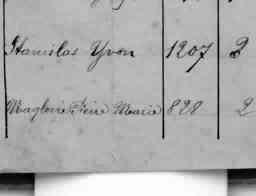 Stanislas Yvon 1207 2
Magloire Marie 828 2